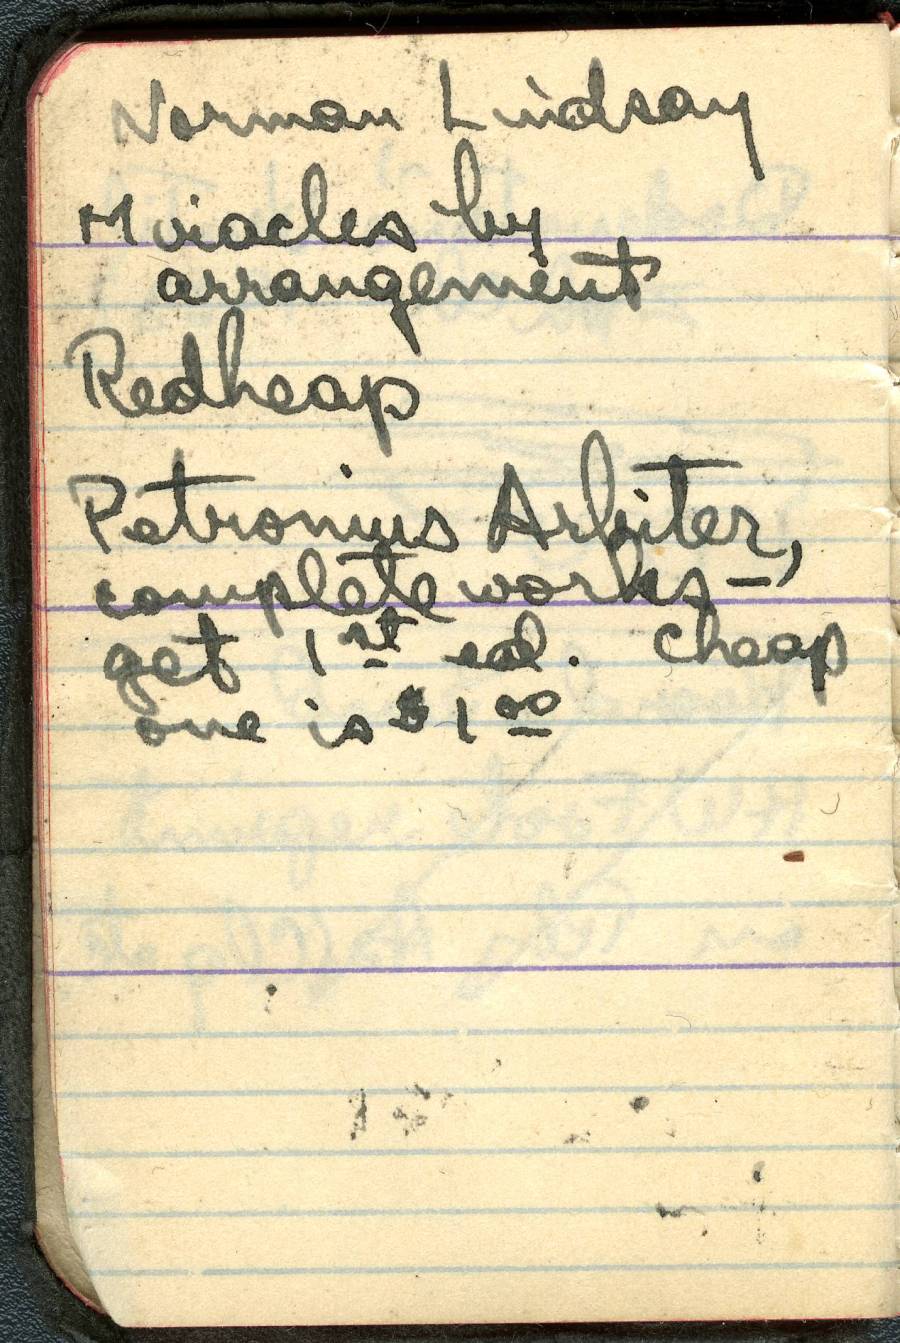 Norman Lindsay
Miracles by
arrangement
Redheap
Petronius Arbiter,
complete works –
get 1st ed. Cheap
one is $1 00